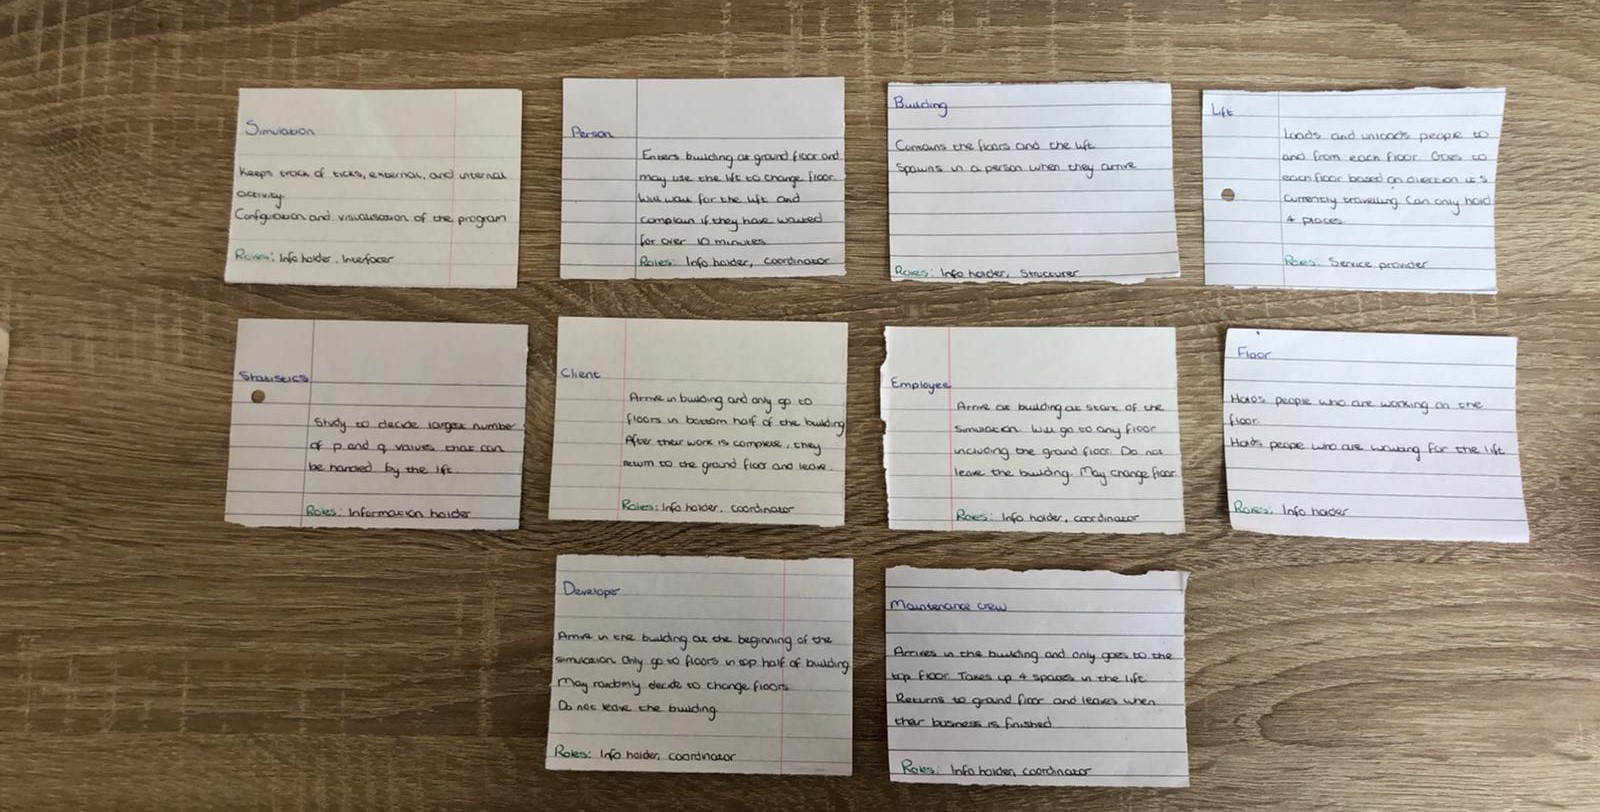 Simulation
Keeps track of ticks, external, and internal
activity.
Configuration and visualisation of the program
Roles: Info holder, Interfacer
Person
Enters building at ground floor and
may use the lift to change floor.
Will wait for the lift and
complain if they have waited
for over 10 minutes.
Roles: Info holder, coordinator
Building
Contains the floors and the lift
Spawns in a person when they arrive
Roles: Info holder, Structurer
Lift
Loads and unloads people to
and from each floor. Goes to
each floor based on direction it's
currently travelling. Can only hold
4 places.
Roles: Service provider
Statistics
Study to decide largest number
of p and q values that can
be handled by the lift.
Roles: Information holder
Client
Arrive in building and only go to
floors in bottom half of the building
After their work is complete, they
return to the ground floor and leave.
Roles: Info holder, coordinator
Employee
Arrive at building at start of the
simulation. Will go to any floor
including the ground floor. Do not
leave the building. May change floor.
Roles: Info holder, coordinator
Floor
Holds people who are working on the
floor.
Holds people who are waiting for the lift
Roles: Info holder
Developer
Arrive in the building at the beginning of the
simulation. Only go to floors in top half of building
May randomly decide to change floors.
Do not leave the building.
Roles: Info holder, coordinator
Maintenance crew
Arrives in the building and only goes to the
top floor. Takes up 4 spaces in the lift.
Returns to ground floor and leaves when
their business is finished
Roles: Info holder, coordinator